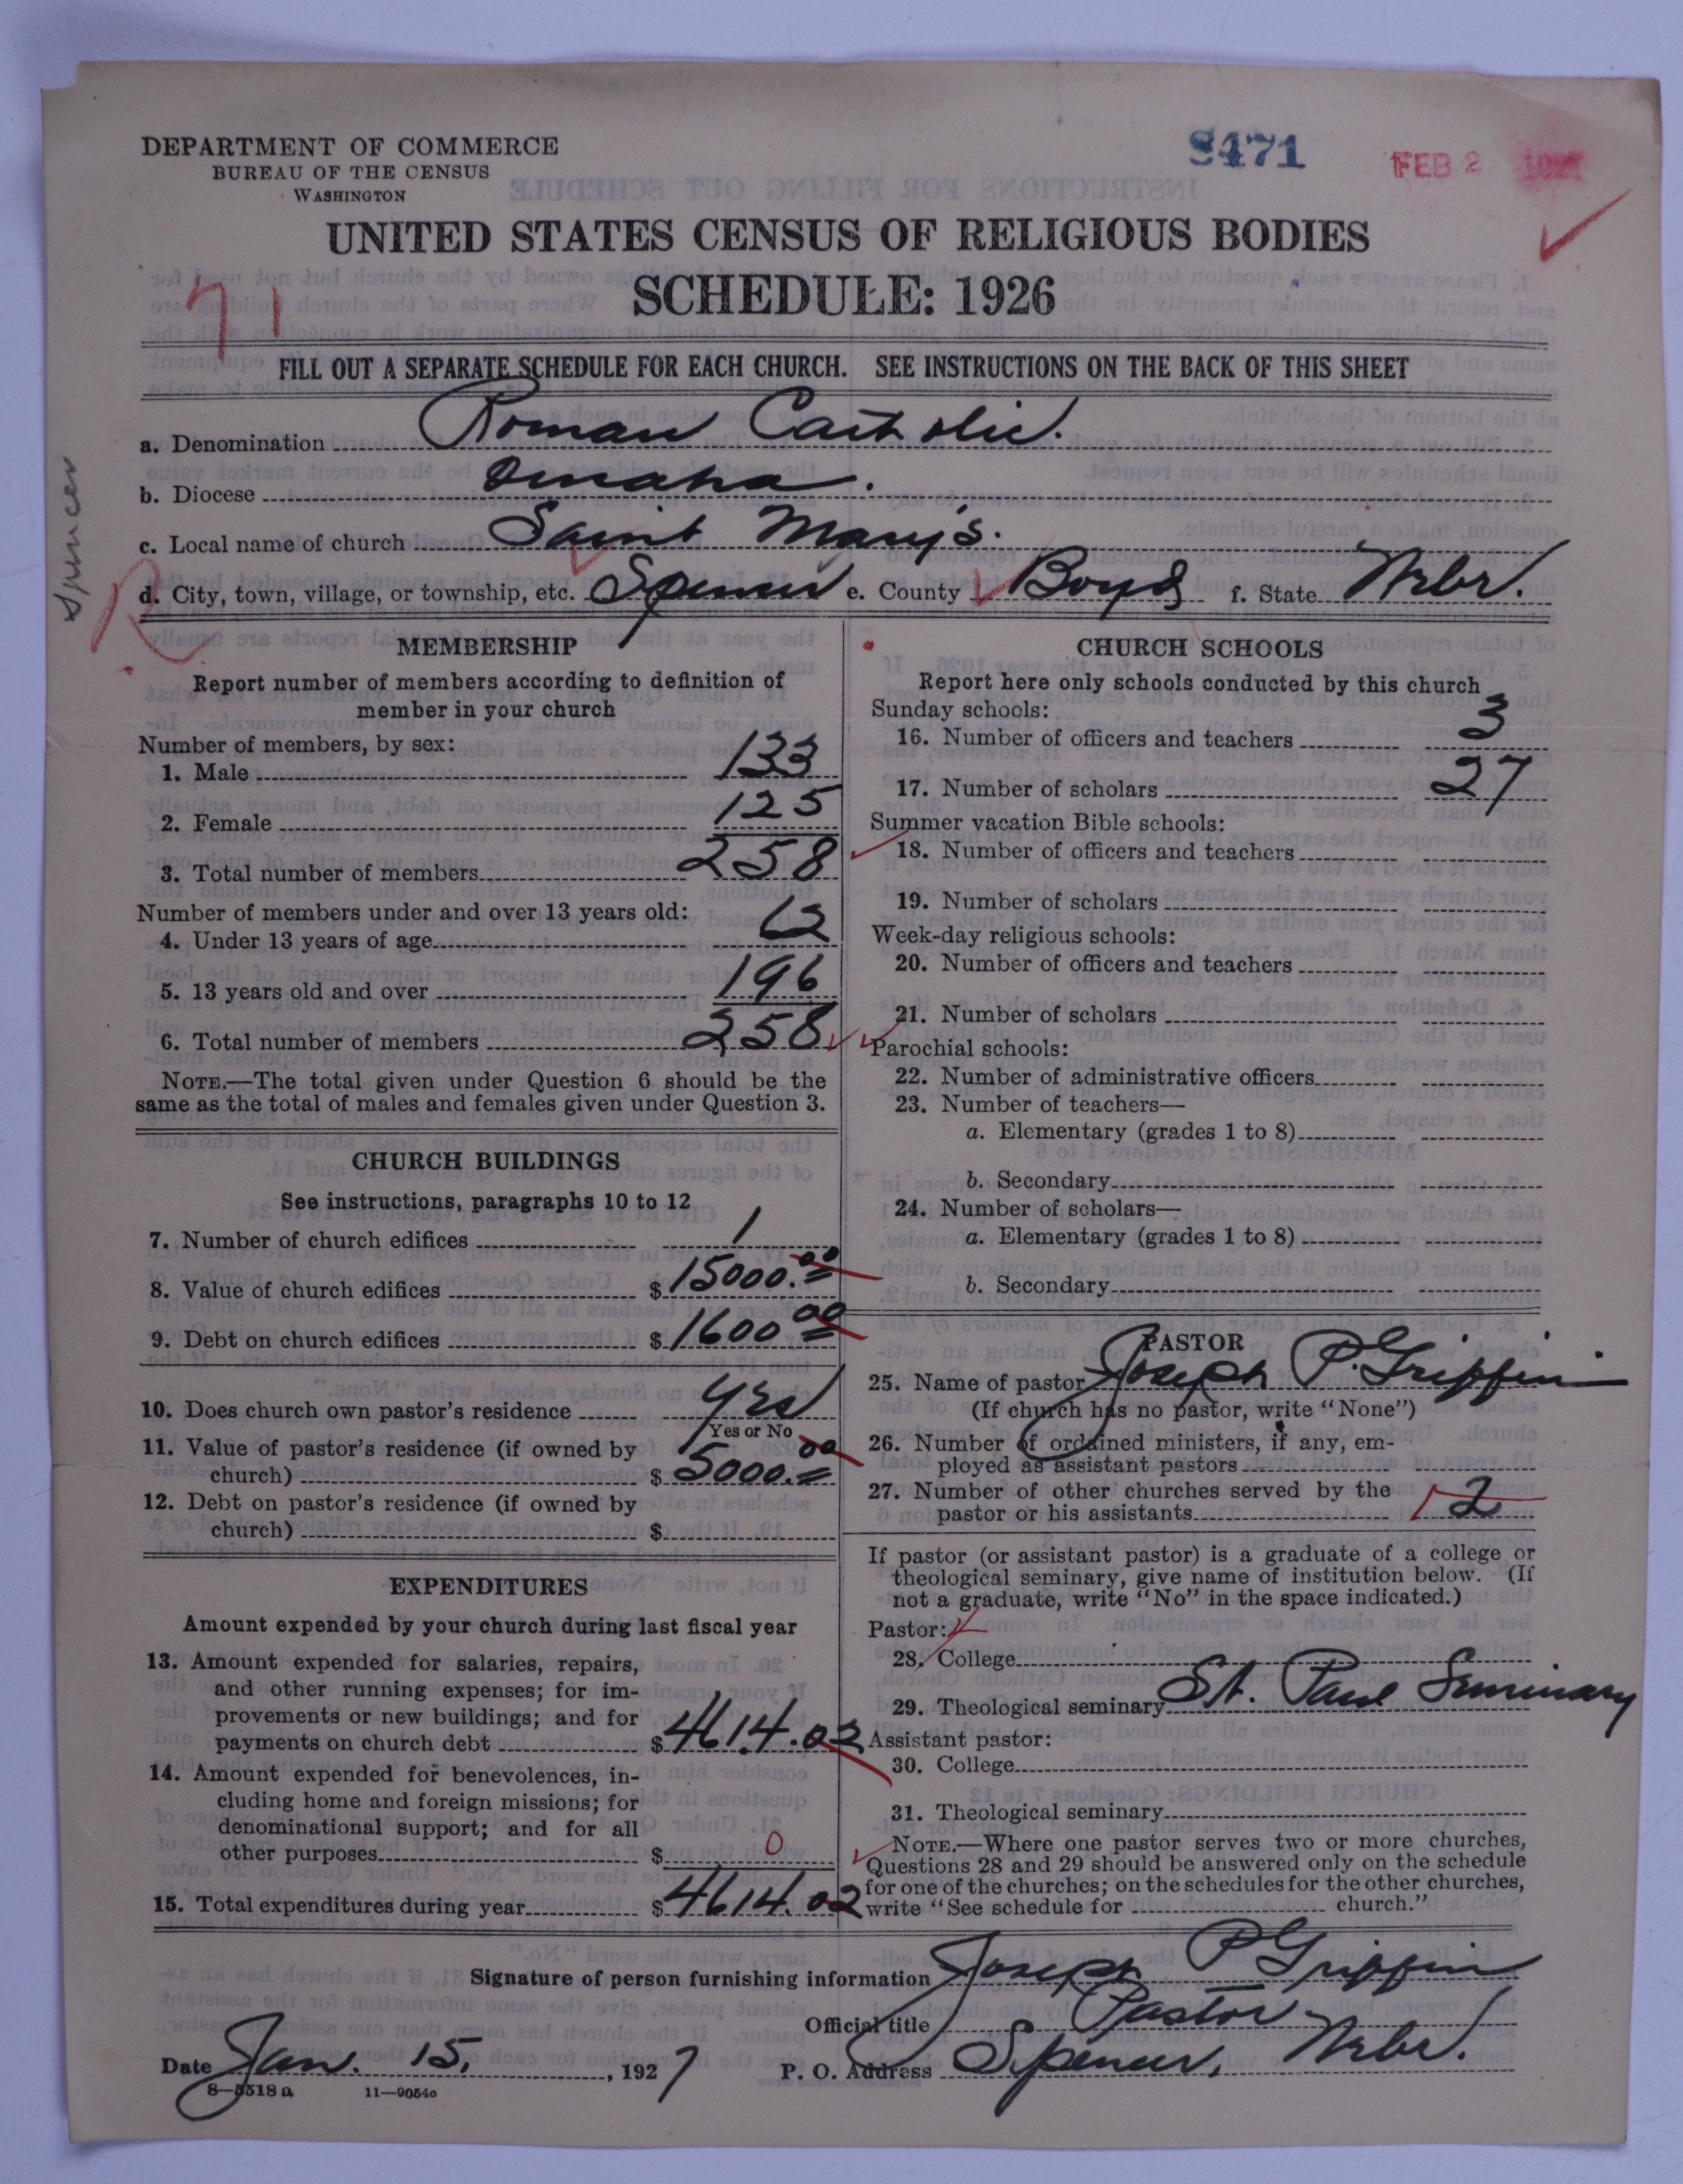 DEPARTMENT OF COMMERCE
BUREAU OF THE CENSUS
WASHINGTON
8471
FEB 2
UNITED STATES CENSUS OF RELIGIOUS BODIES
SCHEDULE: 1926
71
FILL OUT A SEPARATE SCHEDULE FOR EACH CHURCH. SEE INSTRUCTIONS ON THE BACK OF THIS SHEET
a. Denomination Roman Catholic.
b. Diocese Omaha.
c. Local name of church Saint Mary's.
d. City, town, village, or township, etc. Spencer e. County Boyd f. State Nebr.
Spencer
R
MEMBERSHIP
Report number of members according to definition of
member in your church
Number of members, by sex:
1. Male 133
2. Female 125
3. Total number of members 258
Number of members under and over 13 years old:
4. Under 13 years of age 62
5. 13 years old and over 196
6. Total number of members 258
NOTE.—The total given under Question 6 should be the
same as the total of males and females given under Question 3.
CHURCH BUILDINGS
See instructions, paragraphs 10 to 12
7. Number of church edifices 1
8. Value of church edifices $ 15000.00
9. Debt on church edifices $ 1600 00
10. Does church own pastor's residence Yes
Yes or No
11. Value of pastor's residence (if owned by
church) $ 5000.00
12. Debt on pastor's residence (if owned by
church) $
EXPENDITURES
Amount expended by your church during last fiscal year
13. Amount expended for salaries, repairs,
and other running expenses; for im-
provements or new buildings; and for
payments on church debt $ 4614.02
14. Amount expended for benevolences, in-
cluding home and foreign missions; for
denominational support; and for all
other purposes $ 0
15. Total expenditures during year $ 4614.02
CHURCH SCHOOLS
Report here only schools conducted by this church
Sunday schools:
16. Number of officers and teachers 3
17. Number of scholars 27
Summer vacation Bible schools:
18. Number of officers and teachers
19. Number of scholars
Week-day religious schools:
20. Number of officers and teachers
21. Number of scholars
Parochial schools:
22. Number of administrative officers
23. Number of teachers—
a. Elementary (grades 1 to 8)
b. Secondary
24. Number of scholars—
a. Elementary (grades 1 to 8)
b. Secondary
PASTOR
25. Name of pastor Joseph P. Griffin
(If church has no pastor, write "None")
26. Number of ordained ministers, if any, em-
ployed as assistant pastors
27. Number of other churches served by the
pastor or his assistants 2
If pastor (or assistant pastor) is a graduate of a college or
theological seminary, give name of institution below. (If
not a graduate, write "No" in the space indicated.)
Pastor:
28. College
29. Theological seminary St. Paul Seminary
Assistant pastor:
30. College
31. Theological seminary
NOTE.—Where one pastor serves two or more churches,
Questions 28 and 29 should be answered only on the schedule
for one of the churches; on the schedules for the other churches,
write "See schedule for church."
Signature of person furnishing information Joseph P Griffin
Official title Pastor
Date Jan. 15, 1927 P. O. Address Spencer, Nebr.
8—5518 a 11—9054c